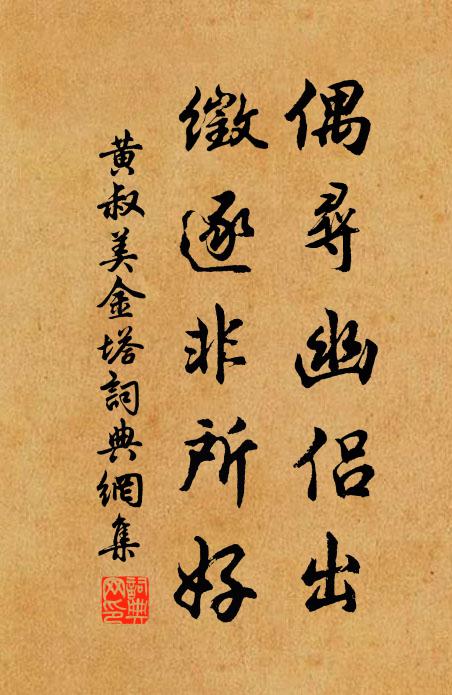 偶尋幽侶出
徵逐非所好
黄叔美金塔詞典網集
詞典網印